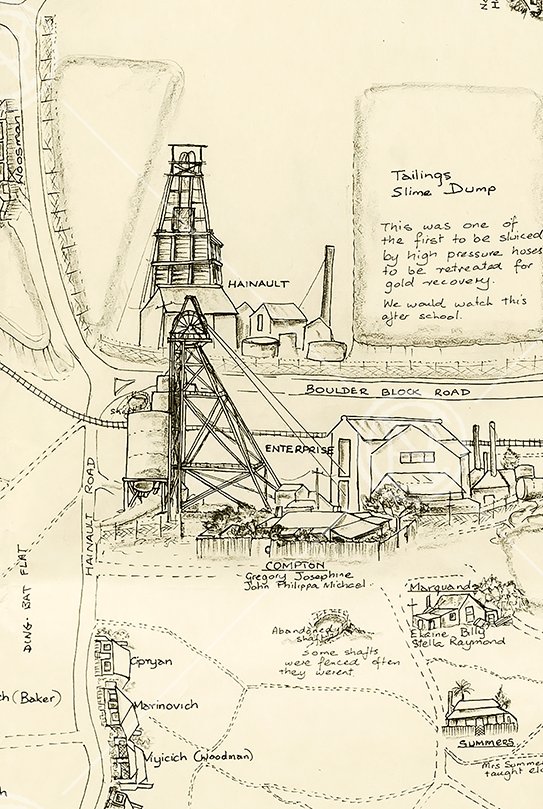 Koosman
Tailings
Slime Dump
This was one of
the first to be sluiced
by high pressure hoses
to be retreated for
gold recovery.
We would watch this
after school.
HAINAULT
BOULDER BLOCK ROAD
ENTERPRISE
HAINAULT ROAD
DING-BAT FLAT
COMPTON
Gregory Josephine
John Philippa Michael
Marquand
Elaine Billy
Stella Raymond
Abandoned
shaft
Some shafts
were fenced often
they werent.
Cipryan
(Baker)
Marinovich
Vjyicich (Woodman)
SUMMERS
Mrs Summe
taught